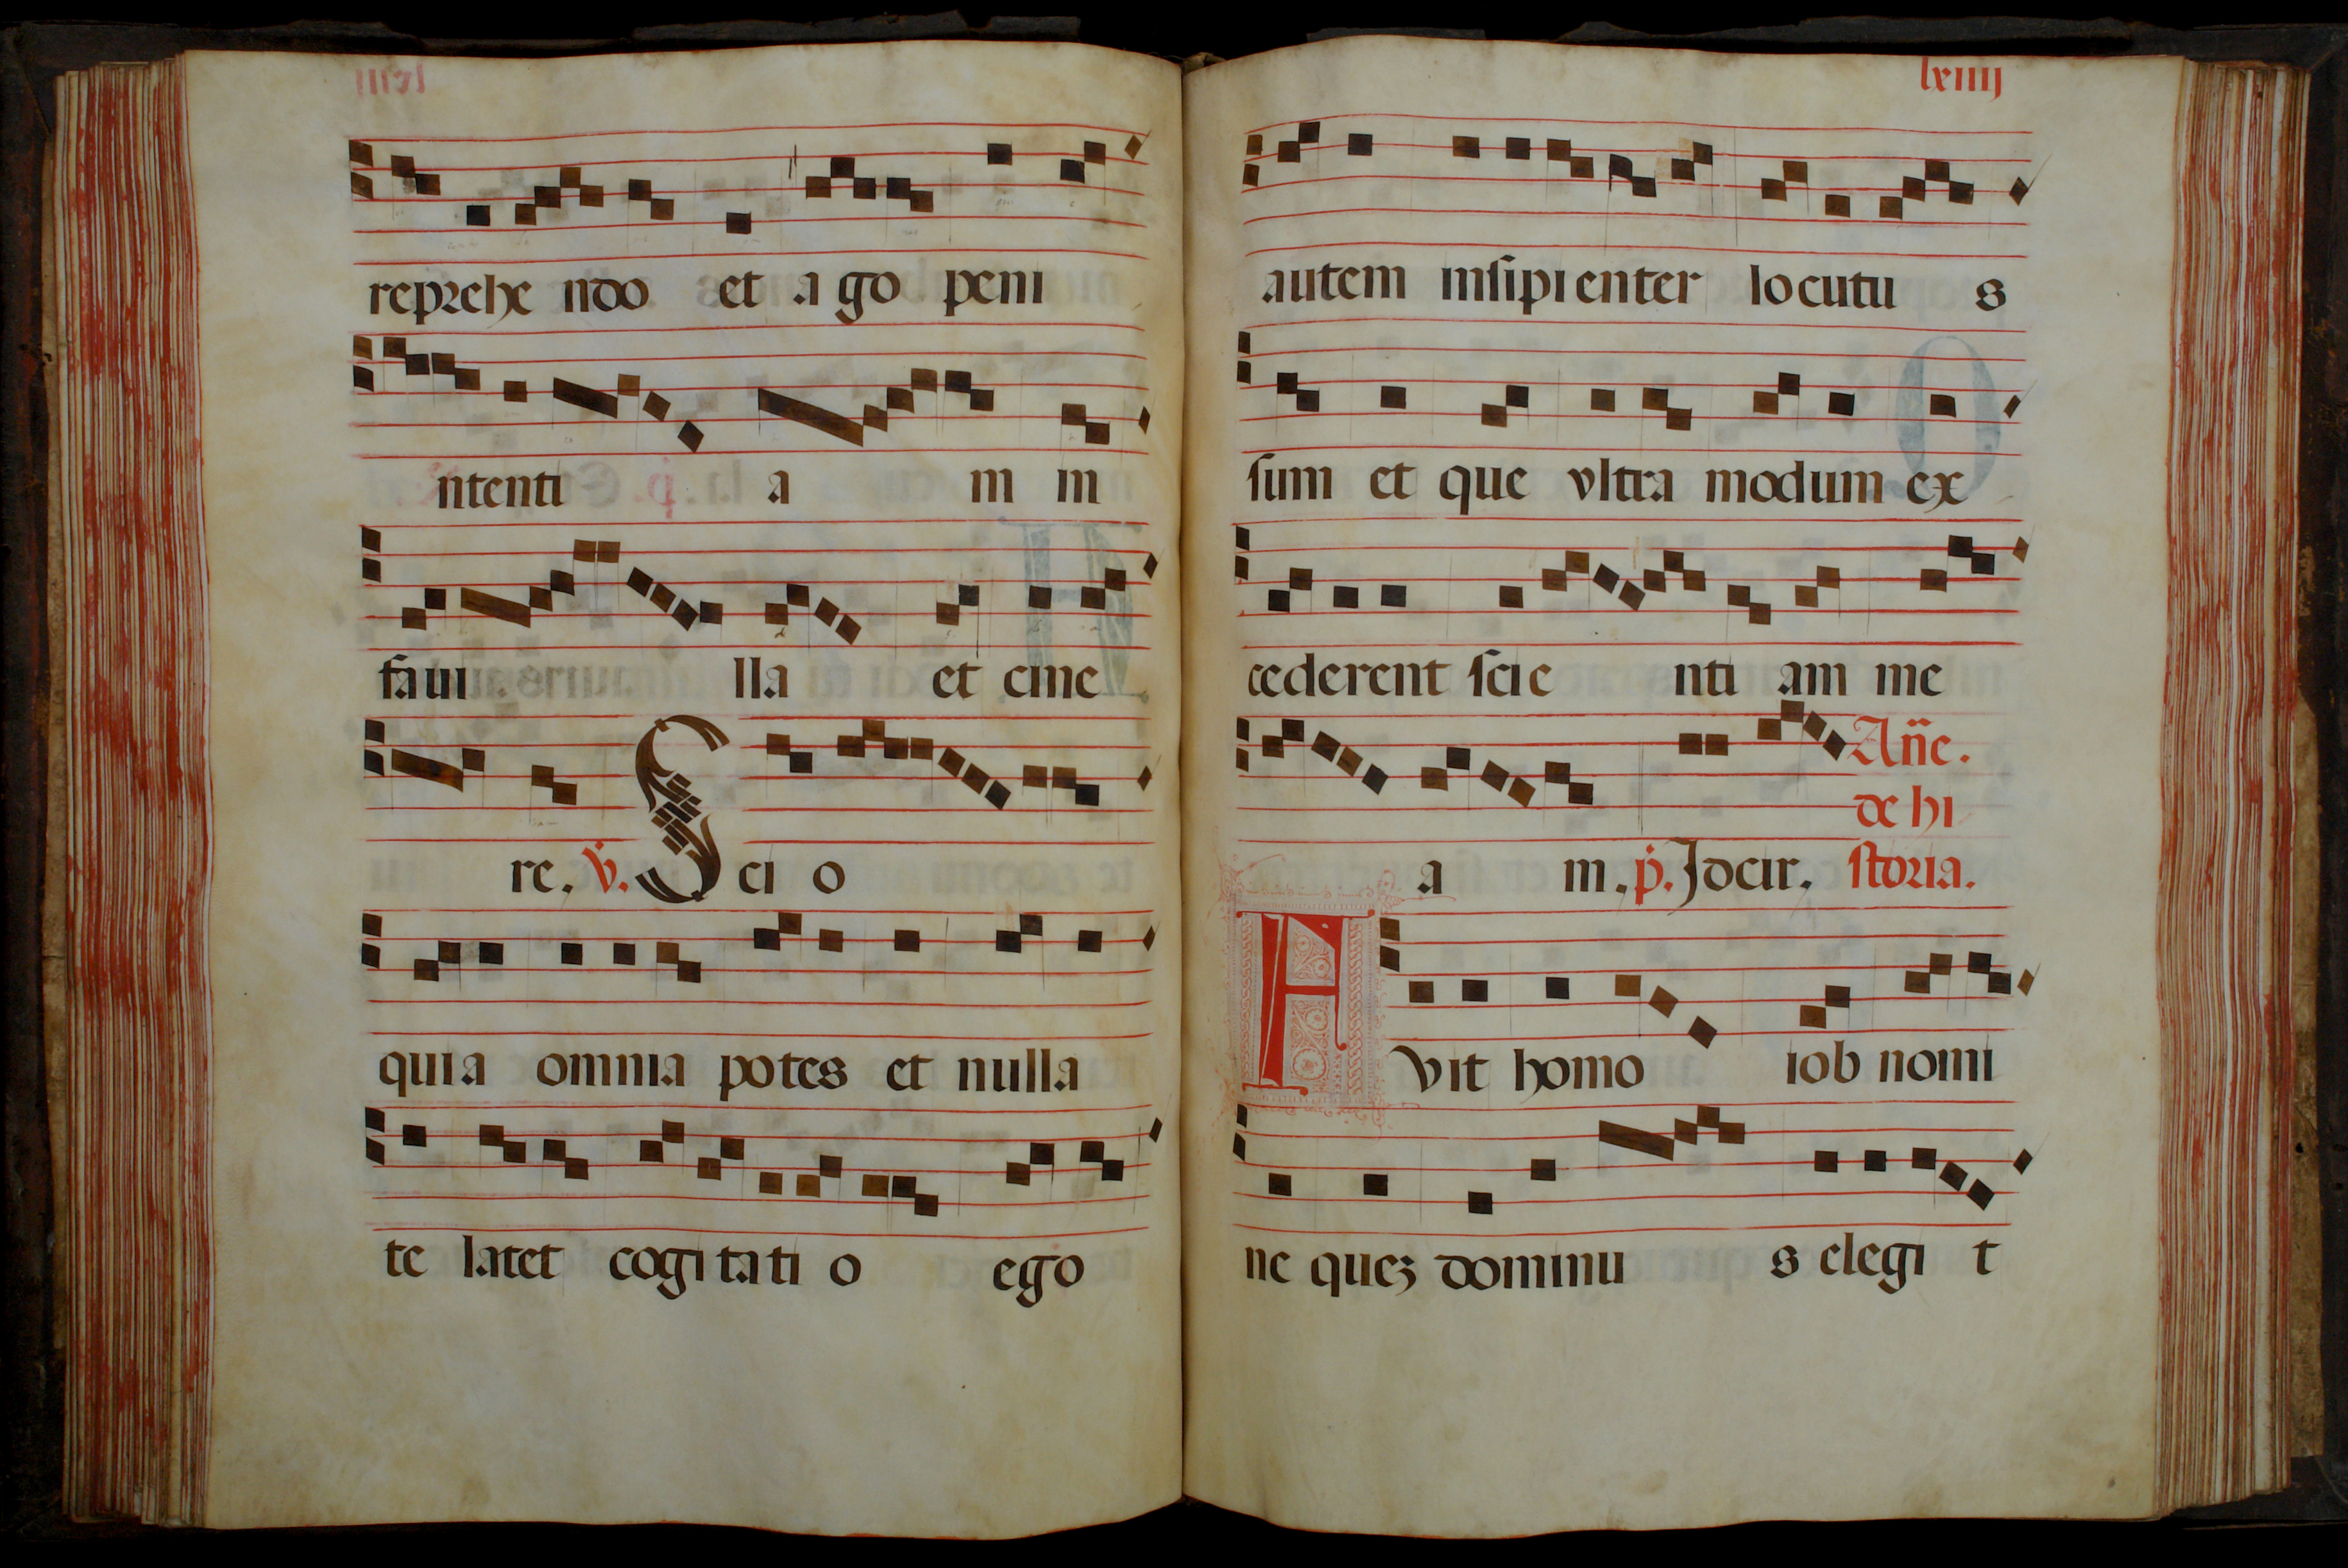 reprehe ndo et a go peni
ntenti a m in
faui lla et cine
re. v. S ci o
quia omnia potes et nulla
te latet cogitati o ego
lxiiij
autem insipienter locutu s
sum et que vltra modum ex
cederent scie nti am me
Añe.
de hi
a m. p. Idcir. storia.
F vit homo iob nomi
ne quez dominu s elegi t